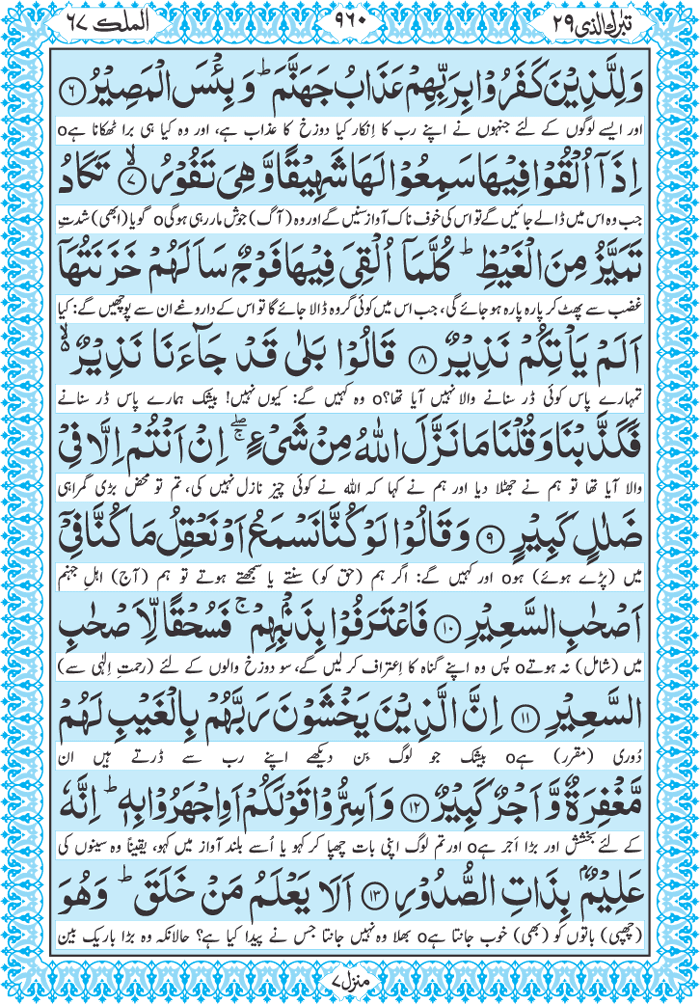 تبٰرک الذی ٢٩
٩٦٠
الملک ٦٧
وَلِلَّذِيْنَ كَفَرُوْا بِرَبِّهِمْ عَذَابُ جَهَنَّمَ ؕ وَبِئْسَ الْمَصِيْرُ ﴿٦﴾
اور ایسے لوگوں کے لئے جنہوں نے اپنے رب کا اِنکار کیا دوزخ کا عذاب ہے، اور وہ کیا ہی برا ٹھکانا ہےo
اِذَاۤ اُلْقُوْا فِيْهَا سَمِعُوْا لَهَا شَهِيْقًا وَّهِىَ تَفُوْرُ ۙ﴿٧﴾ تَكَادُ
جب وہ اس میں ڈالے جائیں گے تو اس کی خوف ناک آواز سنیں گے اور وہ (آگ) جوش مار رہی ہوگیo گویا (ابھی) شدتِ
تَمَيَّزُ مِنَ الْغَيْظِ ؕ كُلَّمَاۤ اُلْقِىَ فِيْهَا فَوْجٌ سَاَلَهُمْ خَزَنَتُهَاۤ
غضب سے پھٹ کر پارہ پارہ ہو جائے گی، جب اس میں کوئی گروہ ڈالا جائے گا تو اس کے داروغے ان سے پوچھیں گے: کیا
اَلَمْ يَاْتِكُمْ نَذِيْرٌ ﴿٨﴾ قَالُوْا بَلٰى قَدْ جَآءَنَا نَذِيْرٌ ۙ
تمہارے پاس کوئی ڈر سنانے والا نہیں آیا تھا؟o وہ کہیں گے: کیوں نہیں! بیشک ہمارے پاس ڈر سنانے
فَكَذَّبْنَا وَقُلْنَا مَا نَزَّلَ اللّٰهُ مِنْ شَىْءٍ ۖۚ اِنْ اَنْتُمْ اِلَّا فِىْ
والا آیا تھا تو ہم نے جھٹلا دیا اور ہم نے کہا کہ اللہ نے کوئی چیز نازل نہیں کی، تم تو محض بڑی گمراہی
ضَلٰلٍ كَبِيْرٍ ﴿٩﴾ وَقَالُوْا لَوْ كُنَّا نَسْمَعُ اَوْ نَعْقِلُ مَا كُنَّا فِىْۤ
میں (پڑے ہوئے) ہوo اور کہیں گے: اگر ہم (حق کو) سنتے یا سمجھتے ہوتے تو ہم (آج) اہلِ جہنم
اَصْحٰبِ السَّعِيْرِ ﴿١٠﴾ فَاعْتَرَفُوْا بِذَنْۢبِهِمْ ۚ فَسُحْقًا لِّاَصْحٰبِ
میں (شامل) نہ ہوتےo پس وہ اپنے گناہ کا اِعتراف کر لیں گے، سو دوزخ والوں کے لئے (رحمتِ اِلٰہی سے)
السَّعِيْرِ ﴿١١﴾ اِنَّ الَّذِيْنَ يَخْشَوْنَ رَبَّهُمْ بِالْغَيْبِ لَهُمْ
دُوری (مقرر) ہےo بیشک جو لوگ بِن دیکھے اپنے رب سے ڈرتے ہیں ان
مَّغْفِرَةٌ وَّاَجْرٌ كَبِيْرٌ ﴿١٢﴾ وَاَسِرُّوْا قَوْلَكُمْ اَوِ اجْهَرُوْا بِهٖ ؕ اِنَّهٗ
کے لئے بخشش اور بڑا اَجر ہےo اور تم لوگ اپنی بات چھپا کر کہو یا اُسے بلند آواز میں کہو، یقیناً وہ سینوں کی
عَلِيْمٌۢ بِذَاتِ الصُّدُوْرِ ﴿١٣﴾ اَلَا يَعْلَمُ مَنْ خَلَقَ ؕ وَهُوَ
(چھپی) باتوں کو (بھی) خوب جانتا ہےo بھلا وہ نہیں جانتا جس نے پیدا کیا ہے؟ حالانکہ وہ بڑا باریک بین
منزل ٧